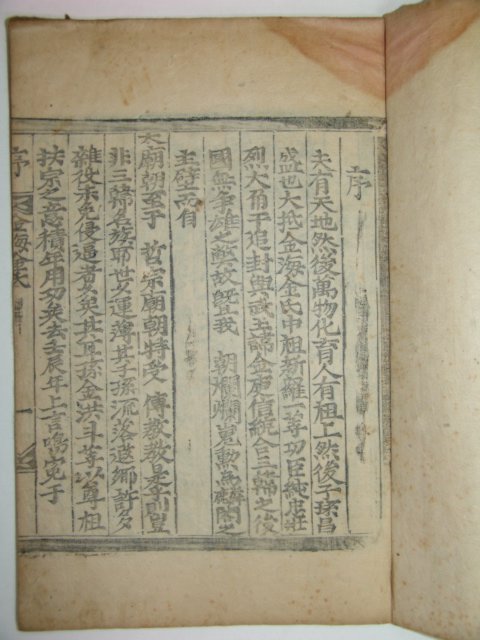 序
夫有天地然後萬物化育人有祖上然後子孫昌
盛也大抵金海金氏中祖新羅一等功臣純忠壯
烈大角干追封興武王諱金庾信統合三韓之後
國無爭雄之 故曁我 朝爛爛嵬勳爲麟閣之
主壁而自
太廟朝至于 哲宗廟朝特受 傳敎敎是季則豈
非三韓名族耶世久運薄其子孫流落遐鄕許多
雜役未免侵逼者久矣其耳孫金洪斗等以尊祖
扶宗之意積年用功矣去壬辰年上言鳴寃于
序 金海金氏 一